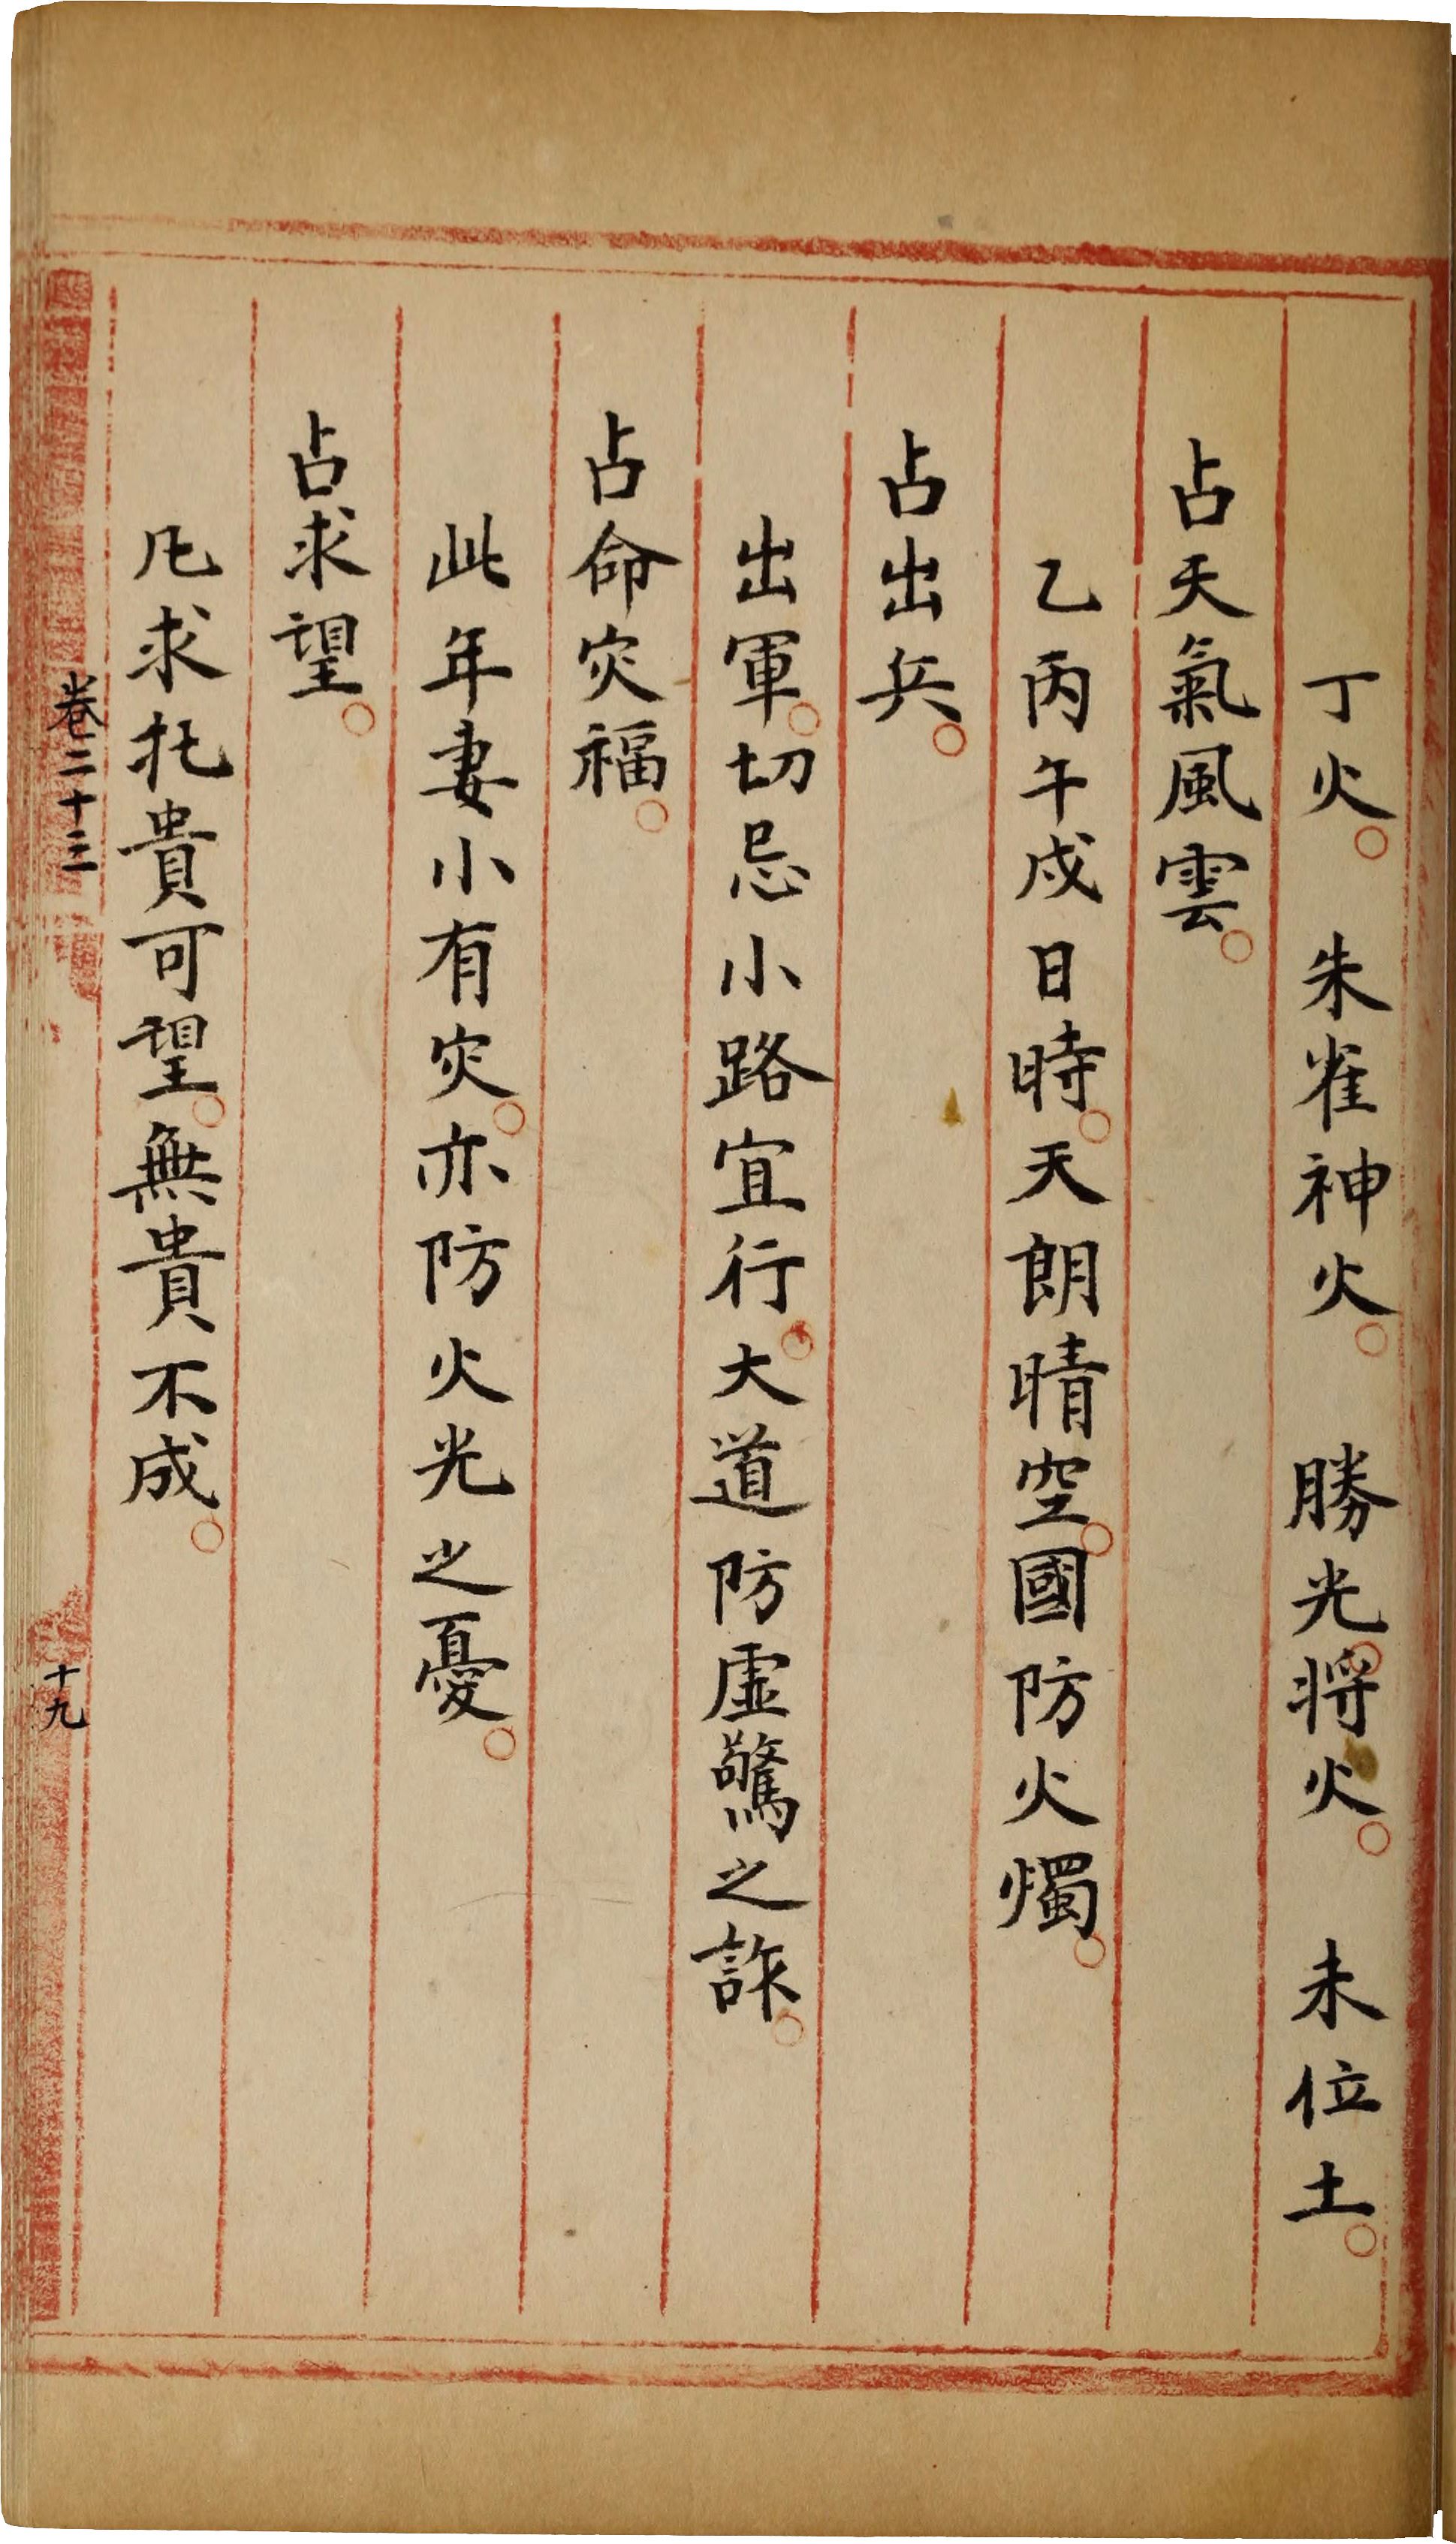 丁火。　朱雀神火。　勝光。将火。　未位土。
占天氣風雲。
乙丙午戌日時。天朗晴空。國防火燭。
占出兵。
出軍。切忌小路宜行。大道防虛驚之詐。
占命灾福。
此年妻小有灾。亦防火光之憂。
占求望。
凡求托貴可望。無貴不成。
卷二十三
十九